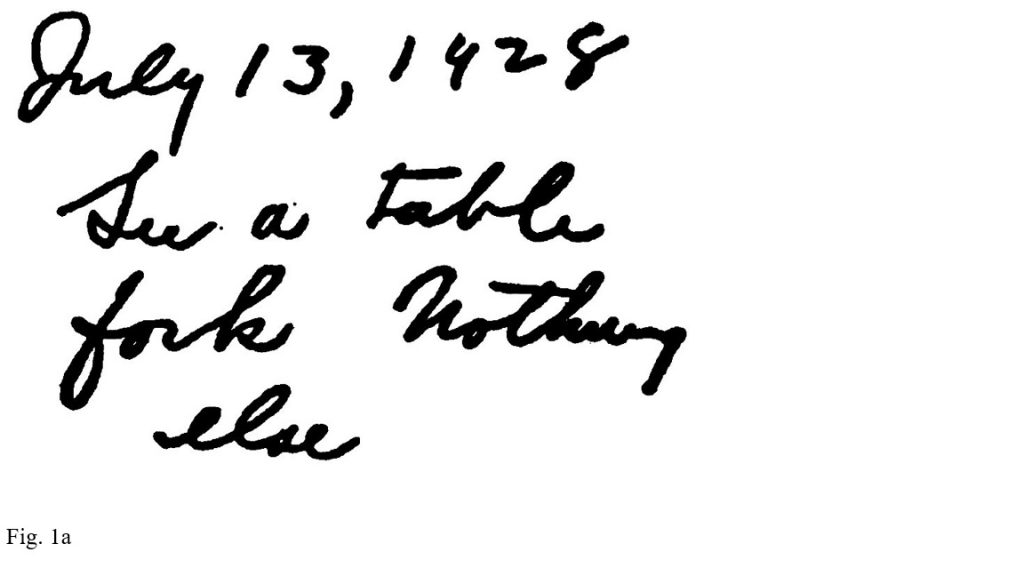 July 13, 1928
See a table
fork Nothing
else
Fig. 1a